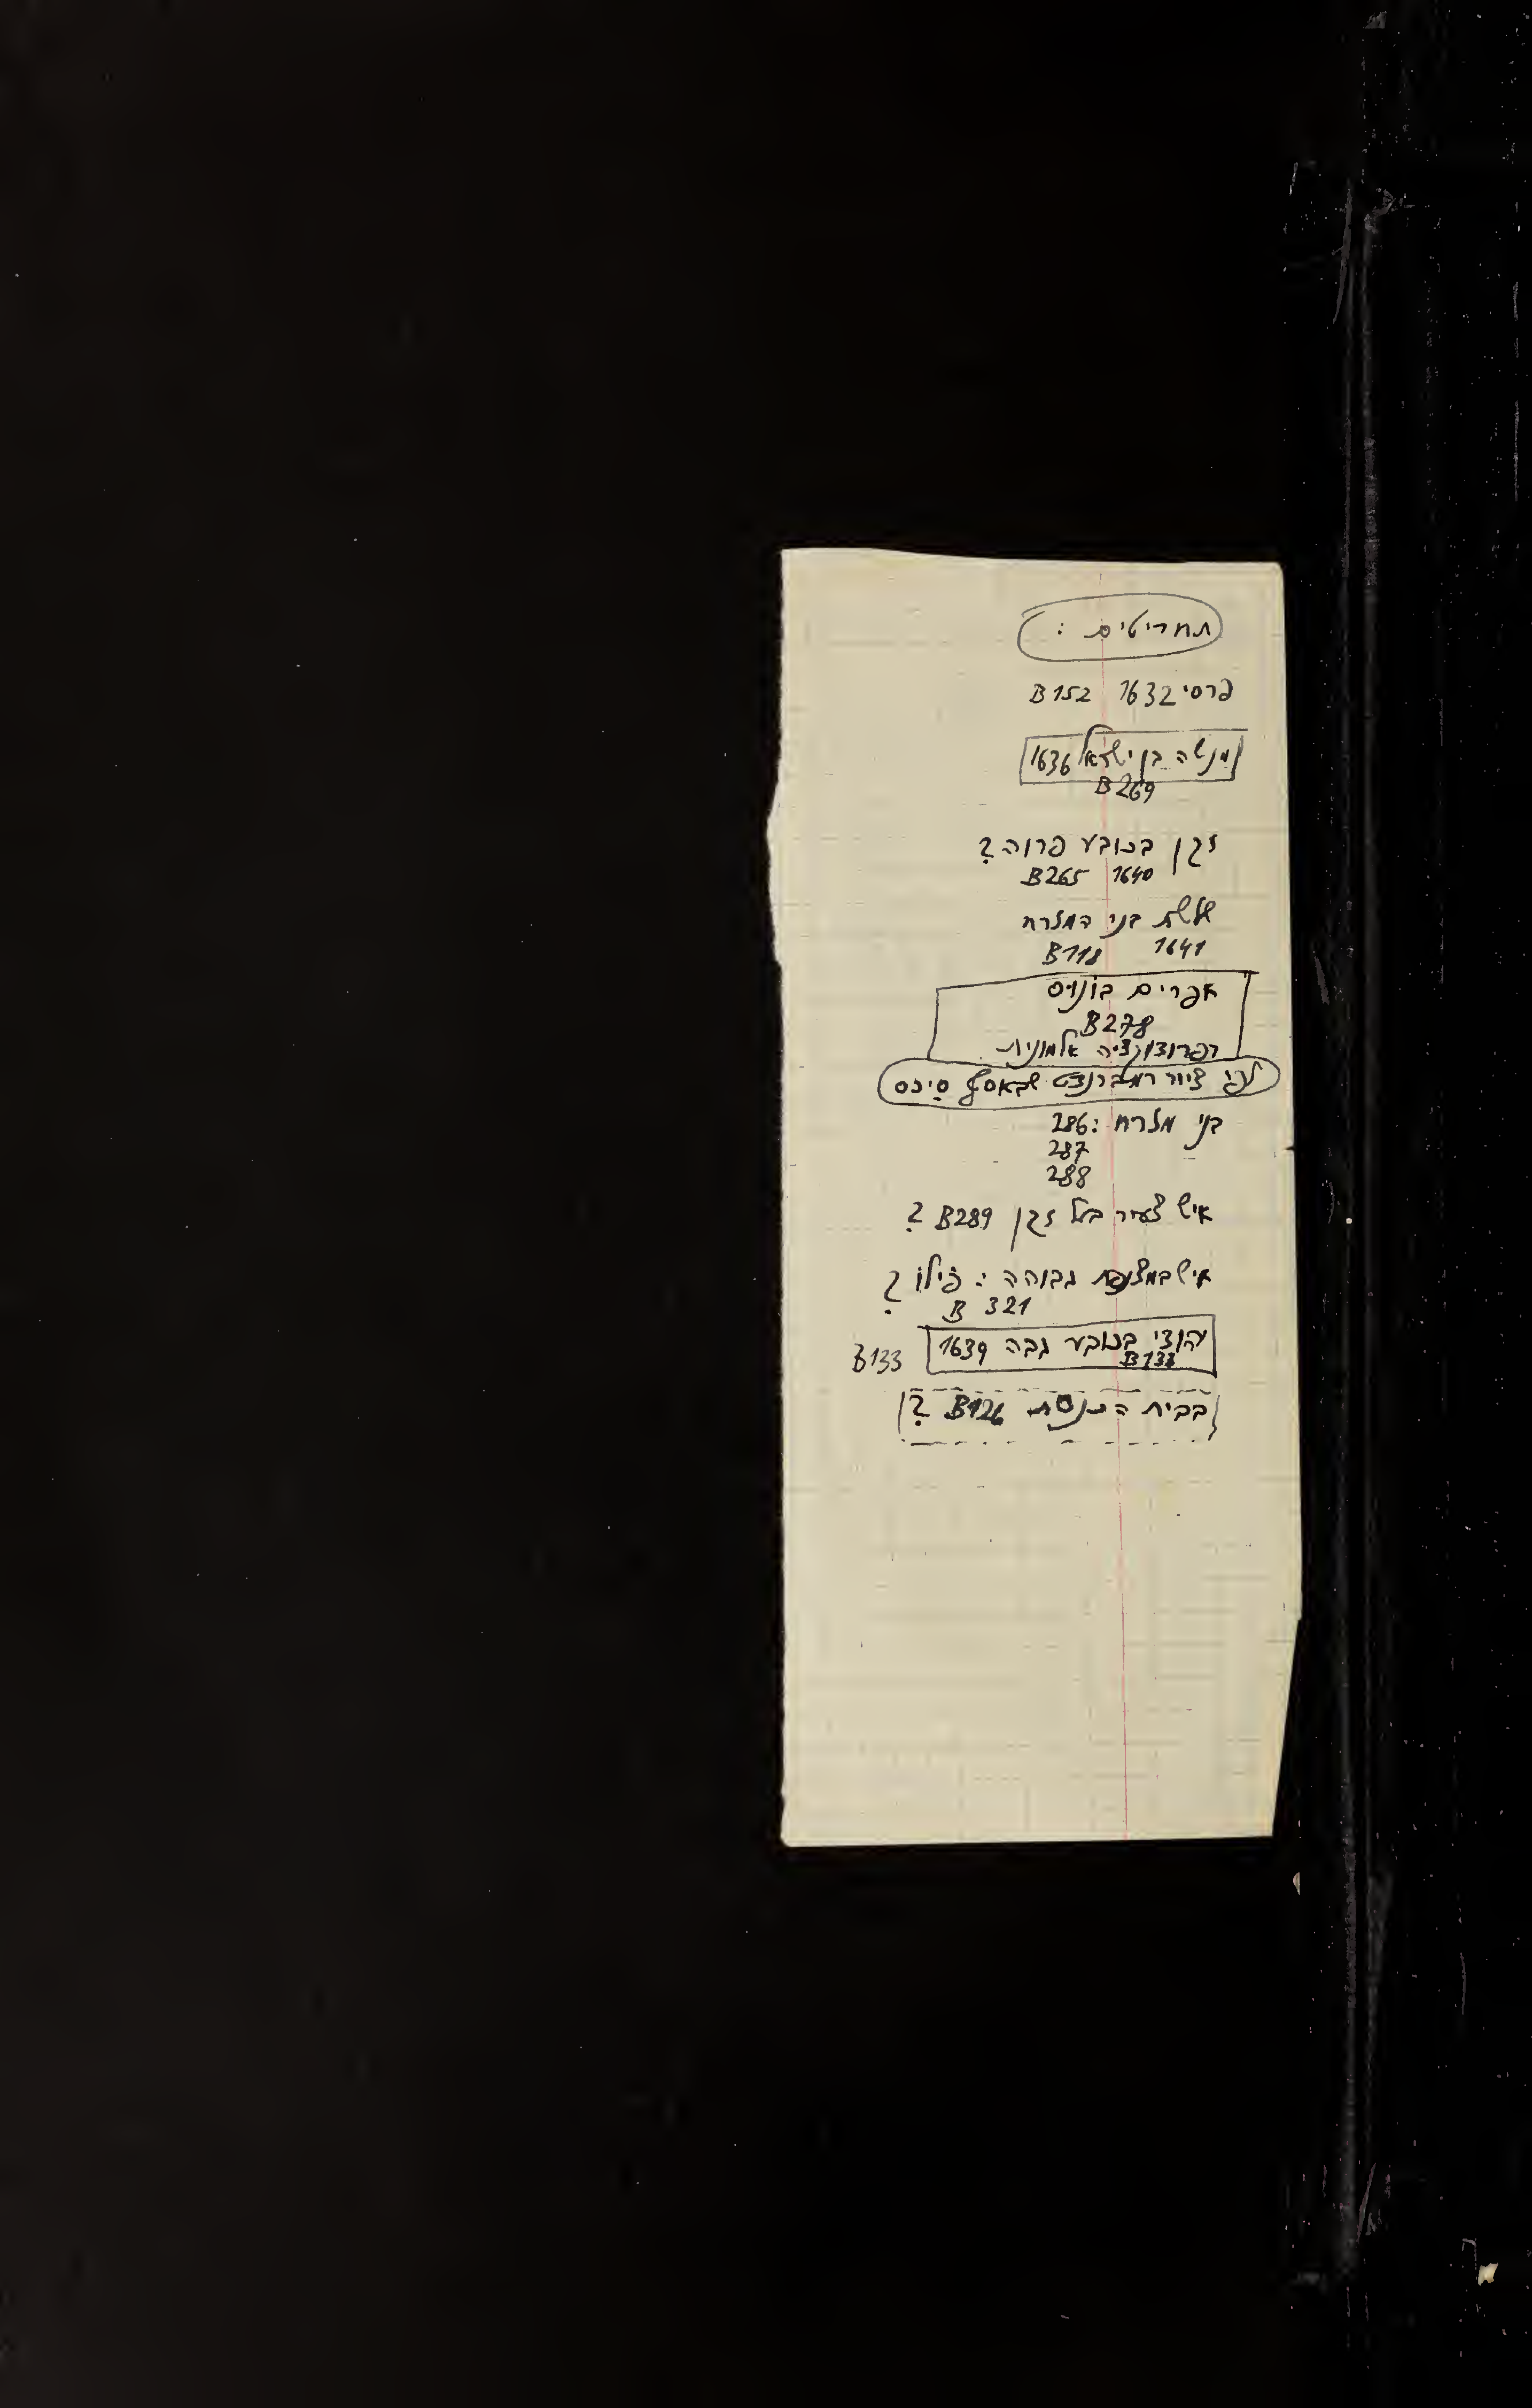 תחריטים :
פרסי 1632 B152
מנשה בן ישראל 1636
B269
זקן בכובע פרוה ?
1640 B265
שלשת בני המזרח
1641 B118
אפרים בונוס
B278
רפרודוקציה אלמונית
לפי ציור רמברנדט שבאסף סיכס
בני מזרח : 286
287
288
איש צעיר בעל זקן B289 ?
איש במצנפת גבוהה : פילו ?
B 321
יהודי בכובע גבה 1639
B133
B133
בבית הכנסת B126 ?